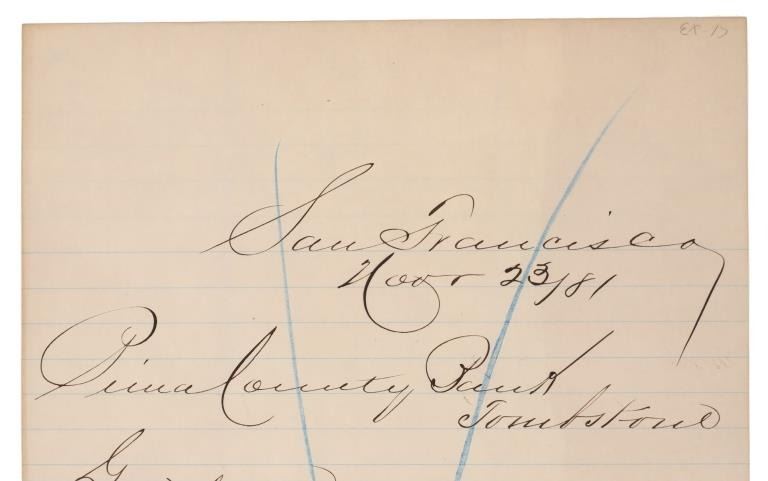 San Francisco
Nov 23/81
Pima County Bank
Tombstone